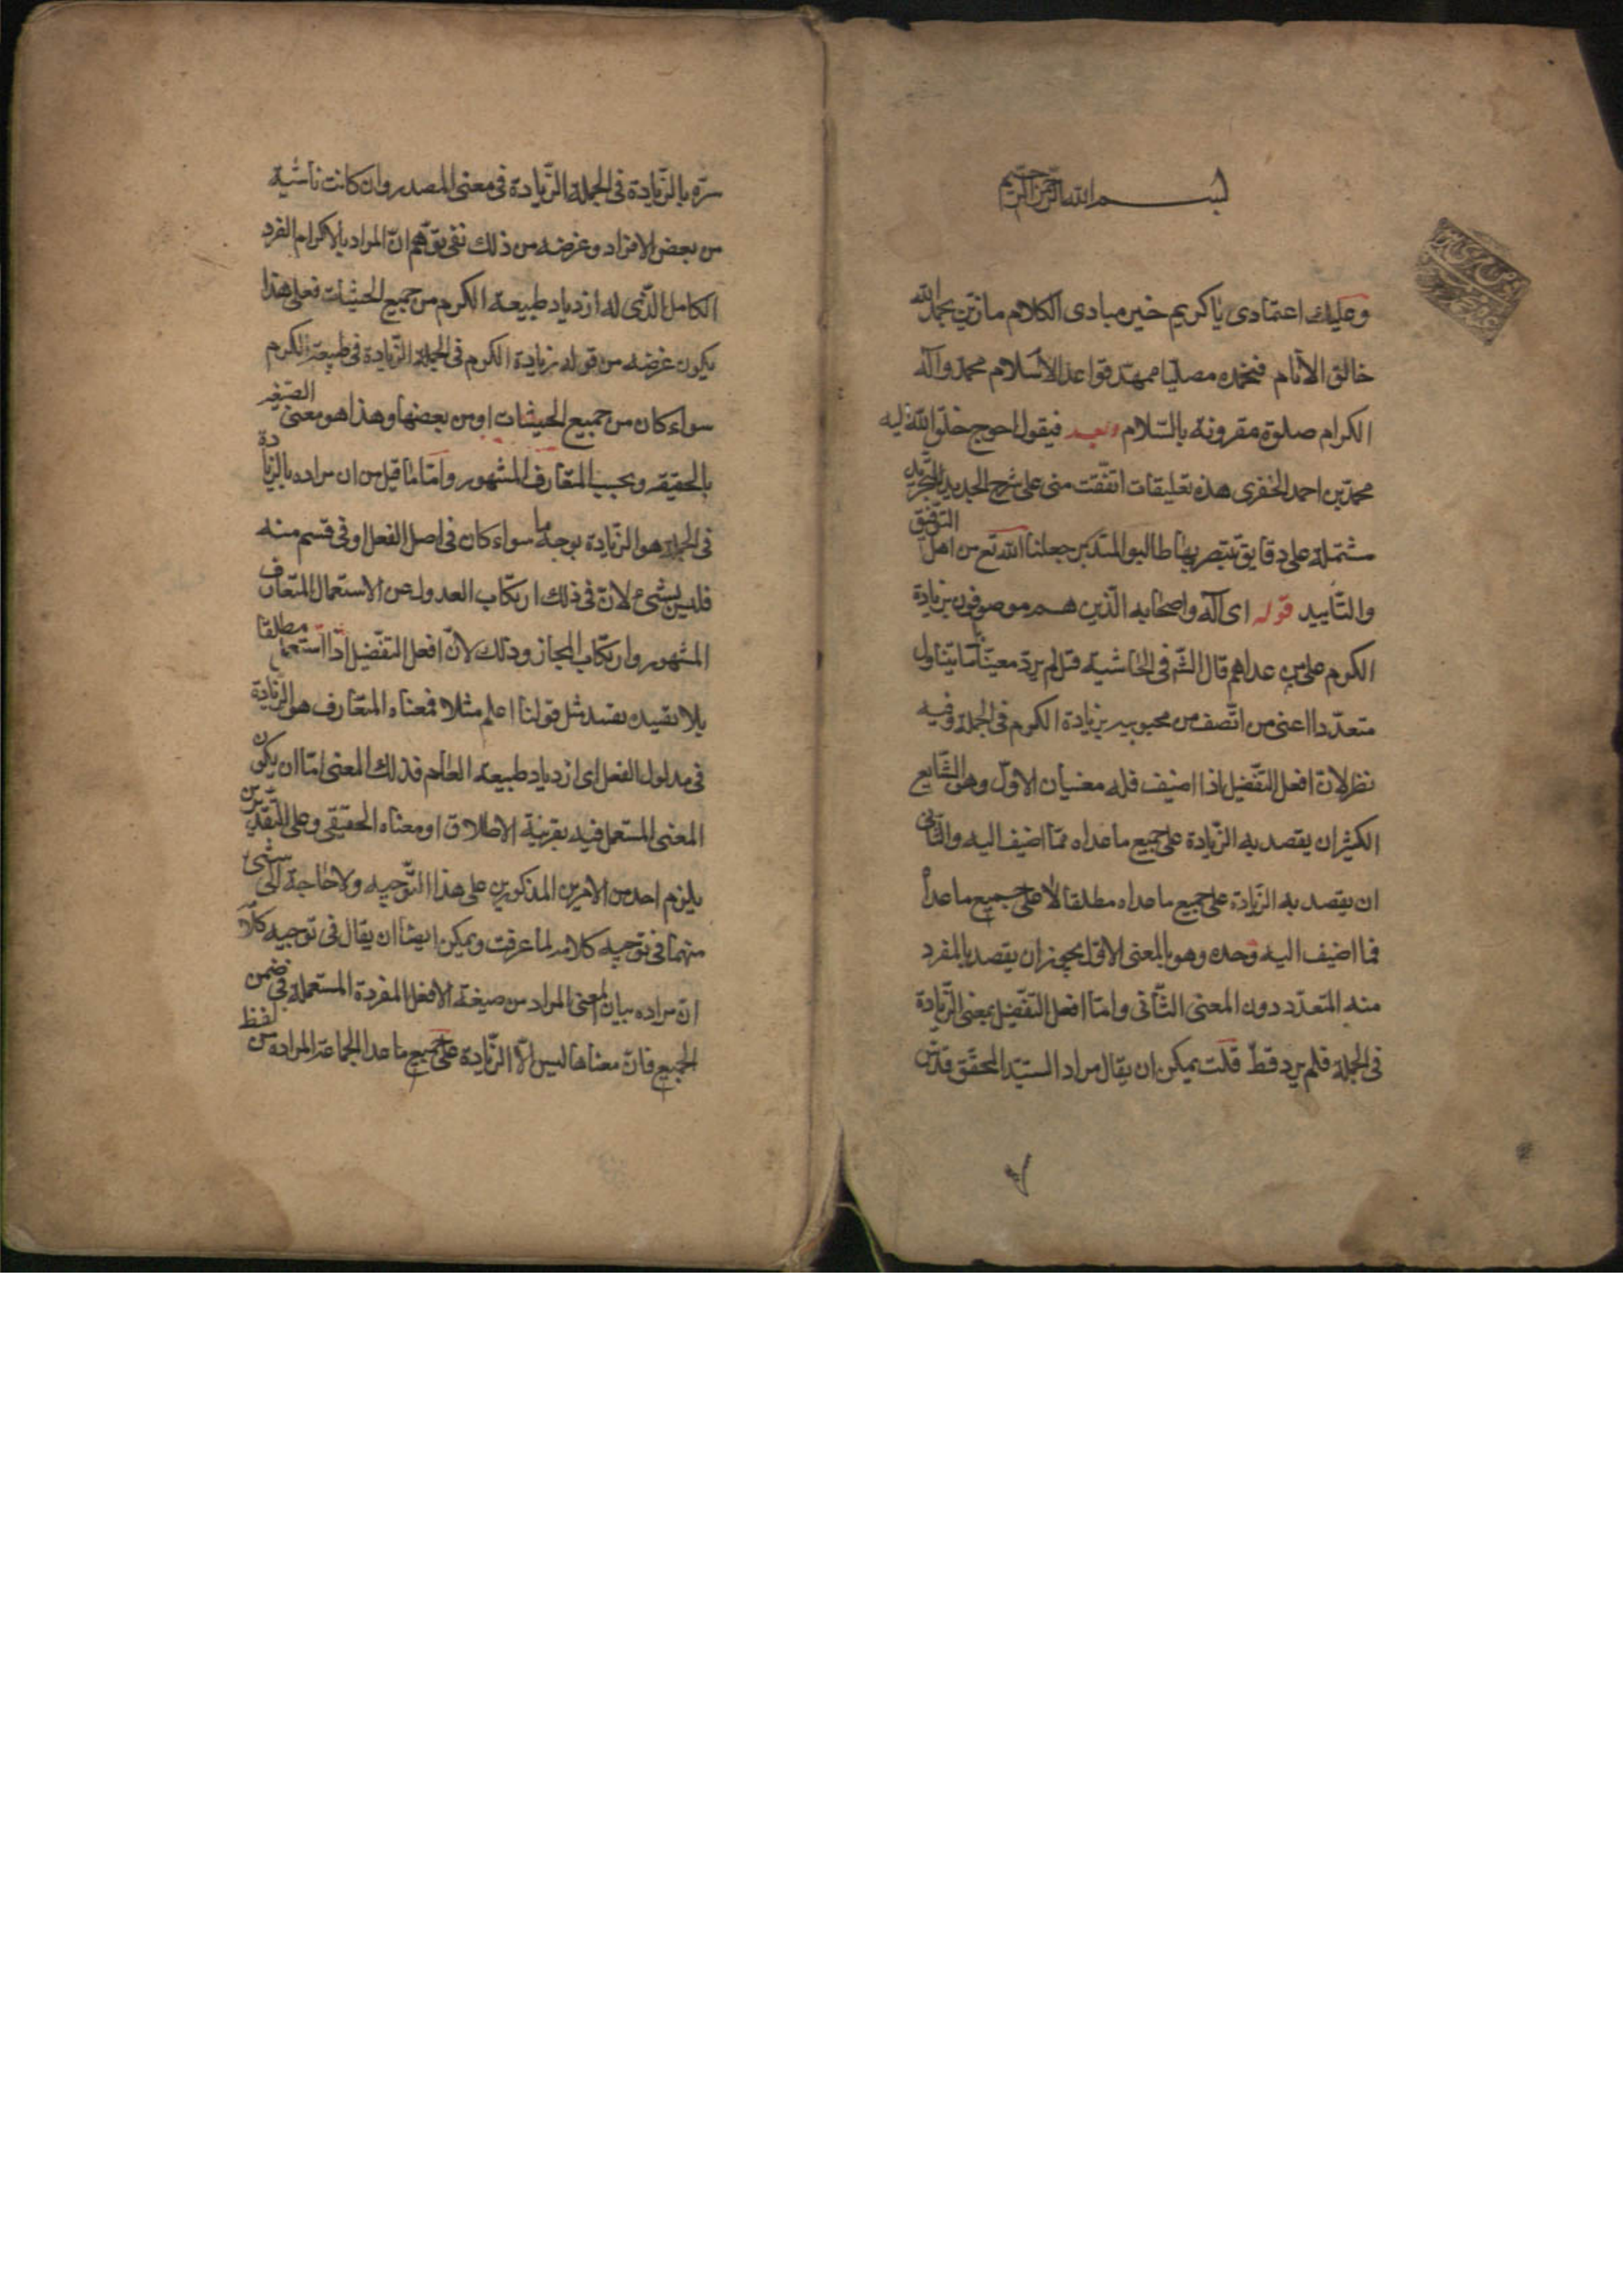 بسم الله الرحمن الرحيم
وعليك اعتمادى يا كريم خير مبادى الكلام ما زين بحمد الله
خالق الانام فنحمده مصليا ممهد قواعد الاسلام محمد وآله
الكرام صلوة مقرونة بالسلام وبعد فيقول احوج خلق الله اليه
محمد بن احمد الخفرى هذه تعليقات اتفقت منى على شرح الجديد للتجريد
مشتملة على دقايق يتبصر بها طالبو المتدبر جعلنا الله تع من اهل التوفيق
والتأييد قوله اى آله واصحابه الذين هم موصوفون بزيادة
الكرم على من عداهم قال الشه فى الحاشية قتل لم يرد معينا بل ما يتناول
متعددا اعنى من اتصف من محبوبيه بزيادة الكرم فى الجملة وفيه
نظر لان افعل التفضيل اذا اضيف فله معنيان الاول وهو الشايع
الكثير ان يقصد به الزيادة على جميع ما عداه مما اضيف اليه والثانى
ان يقصد به الزيادة على جميع ما عداه مطلقا لا على جميع ما عداه
مما اضيف اليه وحده وهو بالمعنى الاول يجوز ان يقصد بالمفرد
منه المتعدد دون المعنى الثانى واما افعل التفضيل بمعنى الزيادة
فى الجملة فلم يرد قط قلت يمكن ان يقال مراد السيد المحقق قدس
سره بالزيادة فى الجملة الزيادة فى معنى المصدر وان كانت ناشية
من بعض الافراد وغرضه من ذلك نفى توهم ان المراد بالاكرام الفرد
الكامل الذى له ازدياد طبيعة الكرم من جميع الحيثيات فعلى هذا
يكون غرضه من قوله زيادة الكرم فى الجملة الزيادة فى طبيعة الكرم
سواء كان من جميع الحيثيات او من بعضها وهذا هو معنى الصيغه
بالحقيقه وبحسب المتعارف المشهور واما ما قيل من ان مراده بالزيادة
فى الجملة هو الزيادة بوجه ما سواء كان فى اصل الفعل او فى قسم منه
فليس بشىء لان فى ذلك ارتكاب العدول عن الاستعمال المتعارف
المشهور وارتكاب المجاز وذلك لان افعل التفضيل اذا استعمل مطلقا
بلا تقييد بقيد مثل قولنا اعلم مثلا فمعناه المتعارف هو الزيادة
فى مدلول الفعل اى ازدياد طبيعة العلم فذلك المعنى اما ان يكون
المعنى المستعمل فيه بقرينة الاطلاق او معناه الحقيقى وعلى التقديرين
يلزم احد من الامرين المذكورين على هذا التوجيه ولا حاجة الى شىء
منهما فى توجيه كلامه لما عرفت ويمكن ايضا ان يقال فى توجيه كلامه
ان مراده بيان المعنى المراد من صيغة الافعل المفردة المستعملة فى ضمن
الجميع فان معناها ليس الا الزيادة على جميع ما عدا الجماعة المراده من لفظ